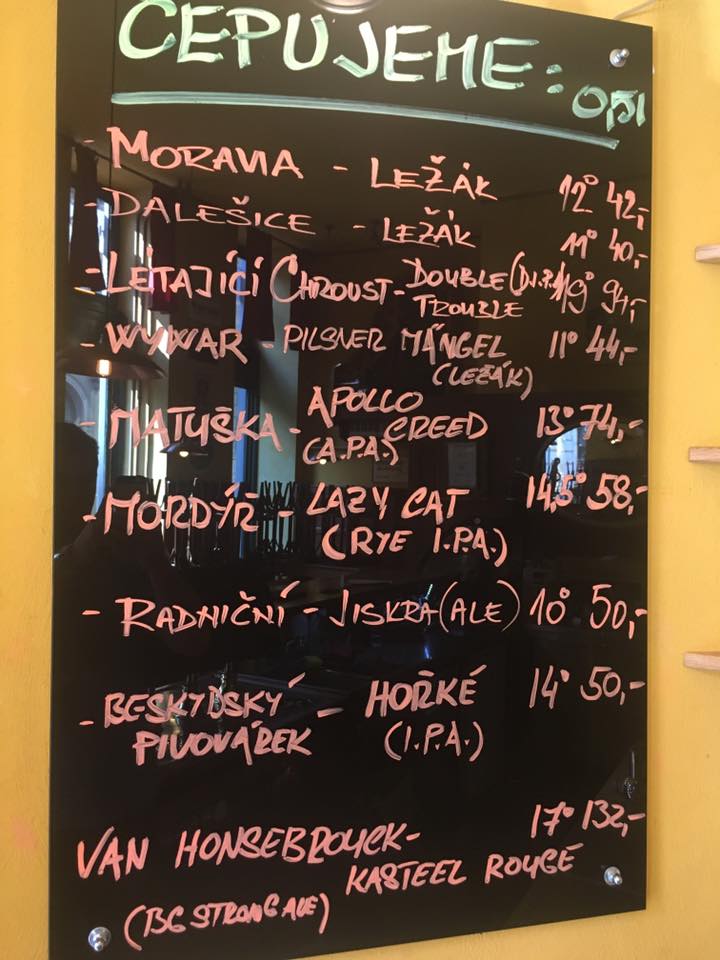 ČEPUJEME: 0,5l
- MORAVIA - LEŽÁK 12° 42,-
- DALEŠICE - LEŽÁK 11° 40,-
- LÉTAJÍCÍ CHROUST - DOUBLE (D.I.P.A) 19° 94,-
TROUBLE
- WYWAR - PILSNER MÄNGEL 11° 44,-
(LEŽÁK)
- MATUŠKA - APOLLO CREED 13° 74,-
(A.P.A.)
- MORDÝŘ - LAZY CAT 14,5° 58,-
(RYE I.P.A.)
- RADNIČNÍ - JISKRA (ALE) 10° 50,-
- BESKYDSKÝ - HOŘKÉ 14° 50,-
PIVOVÁREK (I.P.A.)
VAN HONSEBROUCK - 17° 132,-
KASTEEL ROUGE
(BG STRONG ALE)